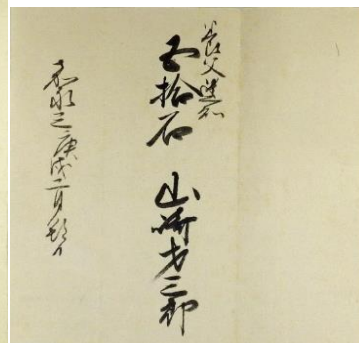 養父遺知
五拾石 山崎才三郎
嘉永三庚戌二月